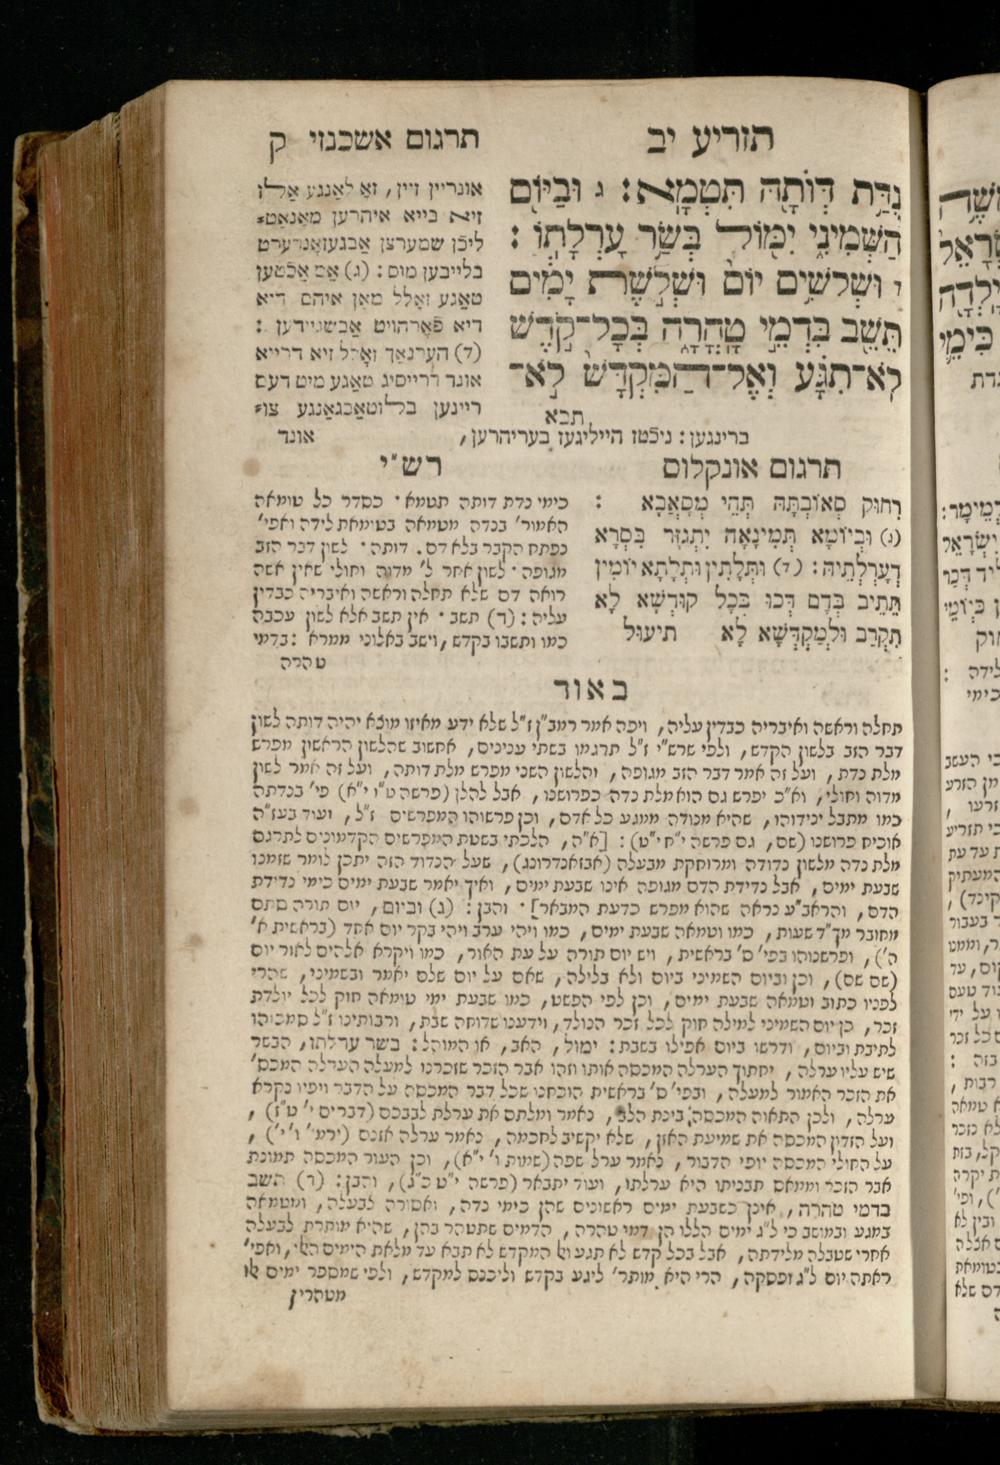 תזריע יב
תרגום אשכנזי ק
נִדַּת דְּוֹתָהּ תִּטְמָא: ג וּבַיּוֹם
הַשְּׁמִינִי יִמּוֹל בְּשַׂר עָרְלָתוֹ:
ד וּשְׁלשִׁים יוֹם וּשְׁלשֶׁת יָמִים
תֵּשֵׁב בִּדְמֵי טָהֳרָה בְּכָל־קֹדֶשׁ
לֹא־תִגָּע וְאֶל־הַמִּקְדָּשׁ לֹא־
תבא
אונריין זיין, זאָ לאַנגע אַללז
זיא בייא איהרען מאָנאַט=
ליכֿן שמערצן אַבגעזאָנדערט
בלייבען מוס: (ג) אַם אַכֿטען
טאַגע זאָלל מאַן איהם דיא
דיא פֿאָרהויט אַבשניידען:
(ד) הערנאַך זאָלל זיא דרייא
אונד דרייסיג טאַגע מיט דעם
ריינען בלוטאַבגאַנגע צו=
ברינגען: ניכֿטז הייליגעז בעריהרען, אונד
תרגום אונקלוס
רִחוּק סְאוֹבְתָהּ תְּהֵי מְסָאֲבָא:
(ג) וּבְיוֹמָא תְּמִינָאָה יִתְגְּזַר בִּסְרָא
דְעָרְלָתֵיהּ: (ד) וּתְלָתִין וּתְלָתָא יוֹמִין
תֵּתֵיב בְּדַם דְּכוּ בְּכָל קוּדְשָׁא לָא
תִקְרַב וּלְמַקְדְּשָׁא לָא תיעול
רש"י
כימי נדת דותה תטמא׳ כסדר כל טומאה
האמור׳ בנדה מטמאה בטומאת לידה ואפי׳
נפתח הקבר בלא דם. דותה׳ לשון דבר הזב
מגופה׳ לשון אחר ל׳ מדוה וחולי שאין אשה
רואה דם שלא תחלה וראשה ואיבריה כבדין
עליה: (ד) תשב׳ אין תשב אלא לשון עכבה
כמו ותשבו בקדש, וישב באלוני ממרא: בדמי
טהרה
באור
תחלה וראשה ואיבריה כבדין עליה, ויפה אמר רמב"ן ז"ל שלא ידע מאיזו מוצא יהיה דותה לשון
דבר הזב בלשון הקדש, ולפי שרש"י ז"ל תרגמו בשתי ענינים, אחשוב שהלשון הראשון מפרש
מלת נדת, ועל זה אמר דבר הזב מגופה, והלשון השני מפרש מלת דותה, ועל זה אמר לשון
מדוה וחולי, וא"כ יפרש גם הוא מלת נדה כפרושנו, אבל להלן (פרשה ט"ו י"א) פי׳ בנדתה
כמו מתבל ינידוהו, שהיא מנודה ממגע כל אדם, וכן פרשוהו המפרשים ז"ל, ועוד בעז"ה
אוכיח פרושנו (שם, גם פרשה י"ח י"ט): [א"ה, הלכתי בשטת המפרשים הקדמונים לתרגם
מלת נדה מלשון נדודה ומרוחקת מבעלה (אבזאנדרונג), שעל הנדוד הזה יתכן לומר שזמנו
שבעת ימים, אבל נדידת הדם מגופה אינו שבעת ימים, ואיך יאמר שבעת ימים כימי נדידת
הדם, והראב"ע נראה שהוא מפרש כדעת המבאר]׳ והבן: (ג) וביום, יום תורה סתם
מחובר מכ"ד שעות, כמו וטמאה שבעת ימים, כמו ויהי ערב ויהי בקר יום אחד (בראשית א׳
ה׳), ופרשנוהו בפי׳ ס׳ בראשית, ויש יום תורה על עת האור, כמו ויקרא אלהים לאור יום
(שם שם), וכן וביום השמיני ביום ולא בלילה, שאם על יום שלם יאמר ובשמיני, שהרי
לפניו כתוב וטמאה שבעת ימים, וכן לפי הפשט, כמו שבעת ימי טומאה חוק לכל יולדת
זכר, כן יום השמיני למילה חוק לכל זכר הנולד, וידענו שדוחה שבת, ורבותינו ז"ל סמכוהו
לתיבת וביום, ודרשו ביום אפילו בשבת: ימול, האב, או המוהל: בשר ערלתו, הבשר
שיש עליו ערלה, יחתוך הערלה המכסה אותו וזהו אבר הזכר שזכרנו למעלה הערלה המכס׳
את הזכר האמור למעלה, ובפי׳ ס׳ בראשית הוכחנו שכל דבר המכסה על הדבר ויפיו נקרא
ערלה, ולכן התאוה המכסה בינת הלב, נאמר ומלתם את ערלת לבבכם (דברים י׳ ט"ז),
ועל הזדון המכסה את שמיעת האזן, שלא יקשיב לחכמה, נאמר ערלה אזנם (ירמי׳ ו׳ י׳),
על החולי המכסה יופי הדבור, נאמר ערל שפה (שמות ו׳ י"א), וכן העור המכסה תמונת
אבר הזכר וממאס תבניתו היא ערלתו, ועוד יתבאר (פרשה י"ט כ"ג), והבן: (ד) תשב
בדמי טהרה, אינן כשבעת ימים ראשונים שהן כימי נדה, ואסורה לבעלה, ומטמאה
במגע ובמושב כי ל"ג ימים הללו הן דמי טהרה, הדמים שתטהר בהן, שהיא מותרת לבעלה
אחרי שטבלה מלידתה, אבל בכל קדש לא תגע ואל המקדש לא תבא עד מלאת הימים האלו, ואפי׳
ראתה יום ל"ג ופסקה, הרי היא מותר׳ ליגע בקדש וליכנס למקדש, ולפי שמספר ימים אלו
מטהרין